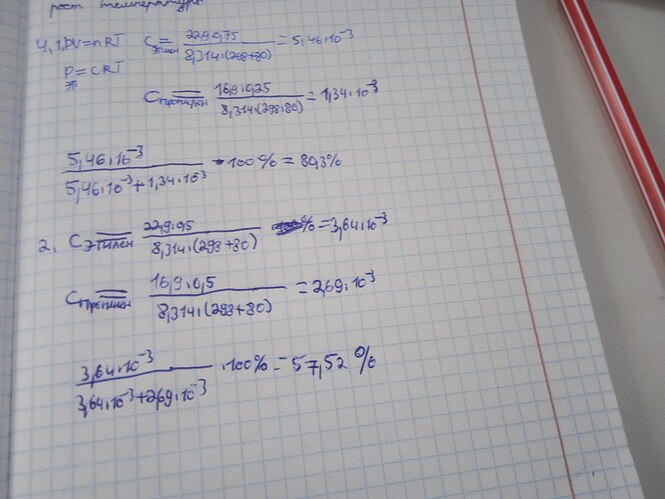 рост температуры
4, 1, PV=nRT C этилен = 22,9·0,75 / 8,314·(298+80) = 5,46·10⁻³
P=CRT
C пропилен = 16,9·0,25 / 8,314·(298+80) = 1,34·10⁻³
5,46·10⁻³ / 5,46·10⁻³+1,34·10⁻³ ·100% = 80,3%
2. C этилен = 22,9·0,5 / 8,314·(298+80) % = 3,64·10⁻³
C пропилен = 16,9·0,5 / 8,314·(298+80) = 2,69·10⁻³
3,64·10⁻³ / 3,64·10⁻³+2,69·10⁻³ ·100% = 57,52%